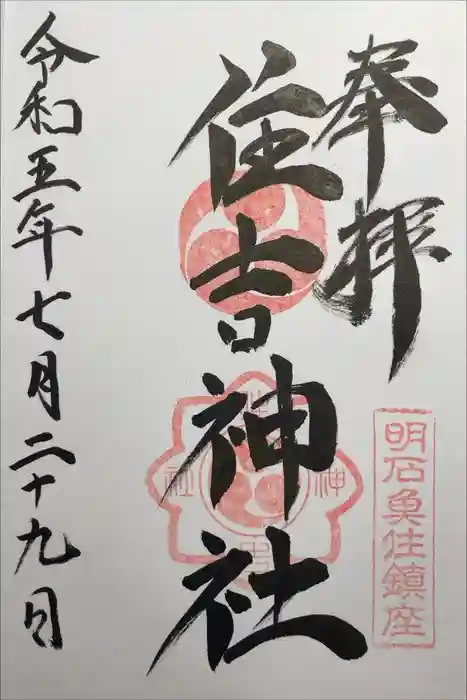 奉拝
明石魚住鎮座
住吉神社
住吉神社
令和五年七月二十九日